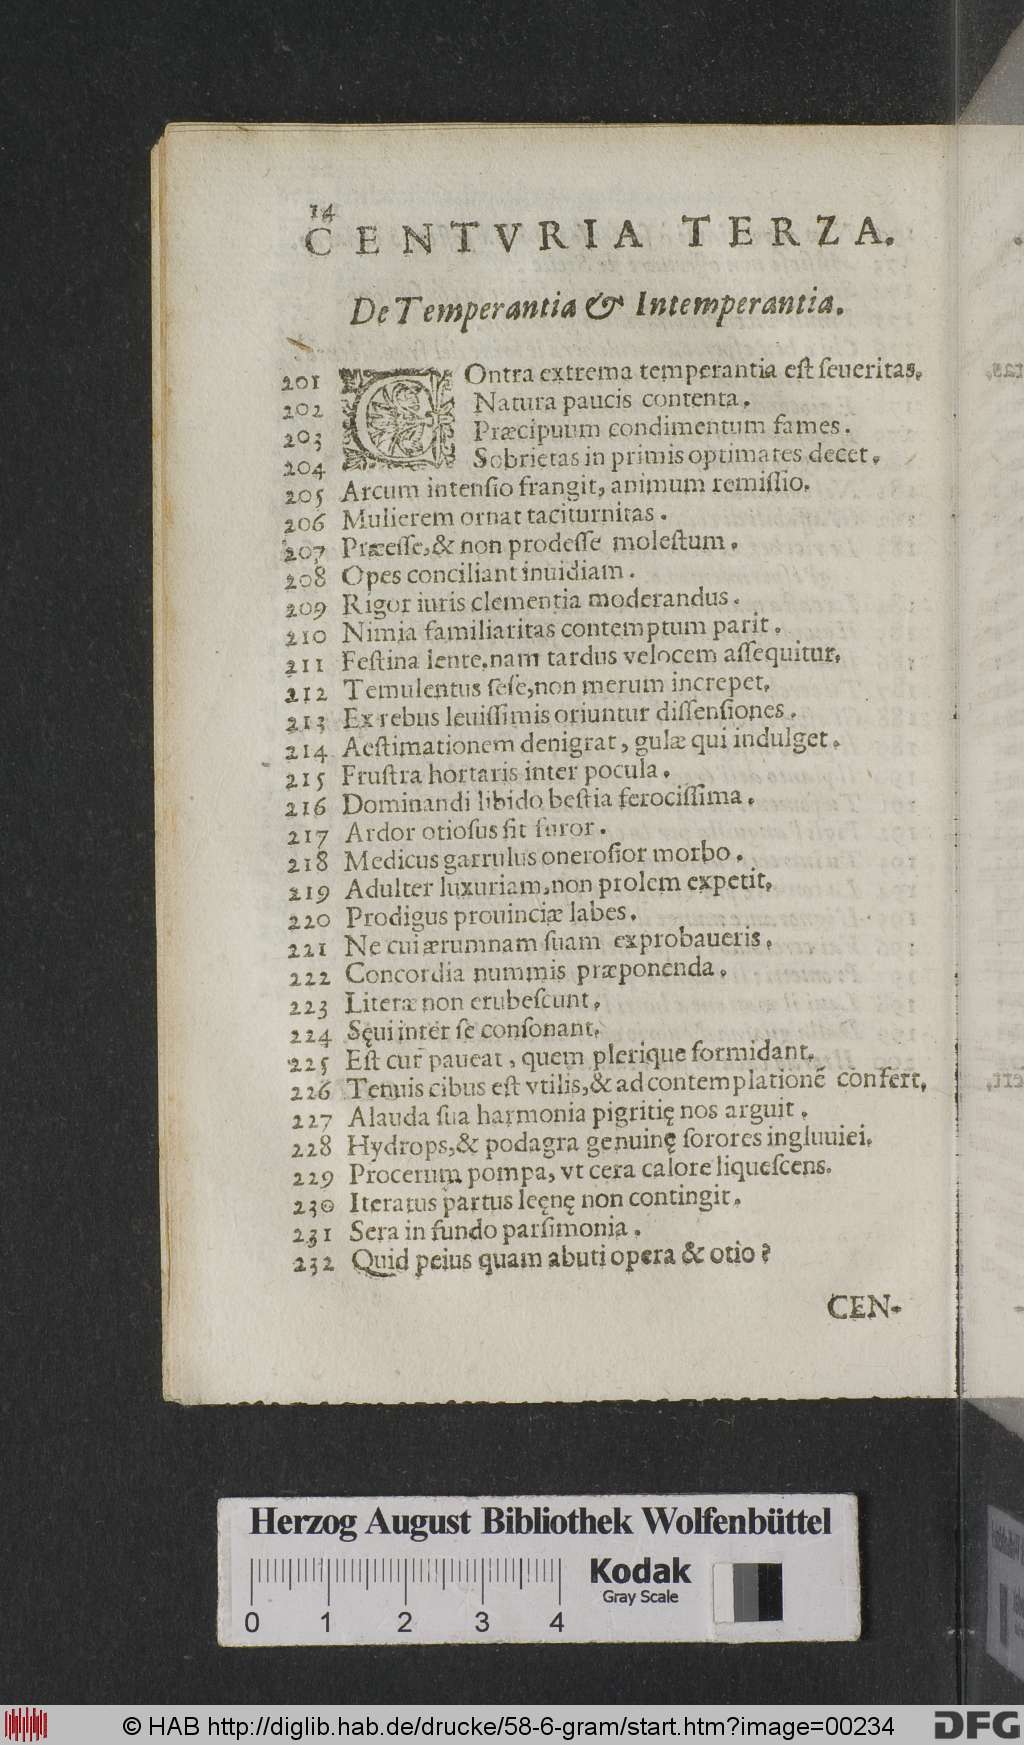 14
CENTVRIA TERZA.
De Temperantia & Intemperantia.
201 COntra extrema temperantia est seueritas.
202 Natura paucis contenta.
203 Præcipuum condimentum fames.
204 Sobrietas in primis optimates decet.
205 Arcum intensio frangit, animum remissio.
206 Mulierem ornat taciturnitas.
207 Præesse, & non prodesse molestum.
208 Opes conciliant inuidiam.
209 Rigor iuris clementia moderandus.
210 Nimia familiaritas contemptum parit.
211 Festina lente, nam tardus velocem assequitur.
212 Temulentus sese, non merum increpet.
213 Ex rebus leuissimis oriuntur dissensiones.
214 Aestimationem denigrat, gulæ qui indulget.
215 Frustra hortaris inter pocula.
216 Dominandi libido bestia ferocissima.
217 Ardor otiosus fit furor.
218 Medicus garrulus onerosior morbo.
219 Adulter luxuriam, non prolem expetit.
220 Prodigus prouinciæ labes.
221 Ne cui ærumnam suam exprobaueris.
222 Concordia nummis præponenda.
223 Literæ non erubescunt.
224 Sęui inter se consonant.
225 Est cur paueat, quem plerique formidant.
226 Tenuis cibus est vtilis, & ad contemplationē confert.
227 Alauda sua harmonia pigritię nos arguit.
228 Hydrops, & podagra genuinę sorores ingluuiei.
229 Procerum pompa, vt cera calore liquescens.
230 Iteratus partus leęnę non contingit.
231 Sera in fundo parsimonia.
232 Quid peius quam abuti opera & otio?
CEN-
Herzog August Bibliothek Wolfenbüttel
Kodak
Gray Scale
0 1 2 3 4
© HAB http://diglib.hab.de/drucke/58-6-gram/start.htm?image=00234
DFG